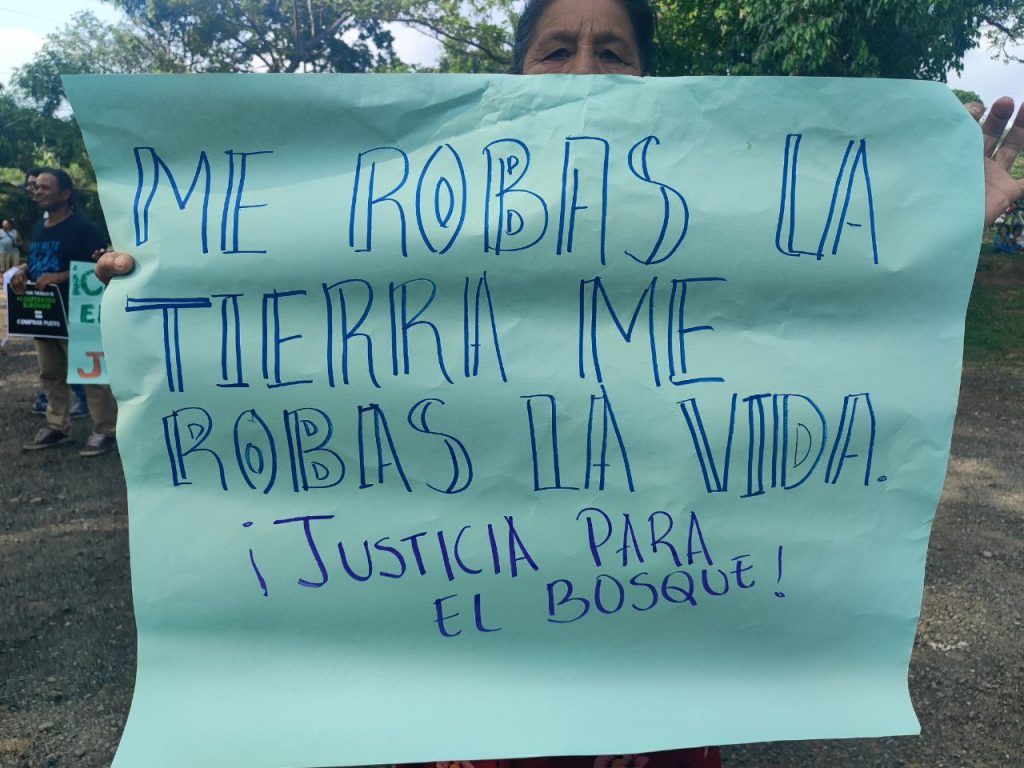 ME ROBAS LA
TIERRA ME
ROBAS LA VIDA.
¡JUSTICIA PARA
EL BOSQUE!
COMPRAR PLEITO